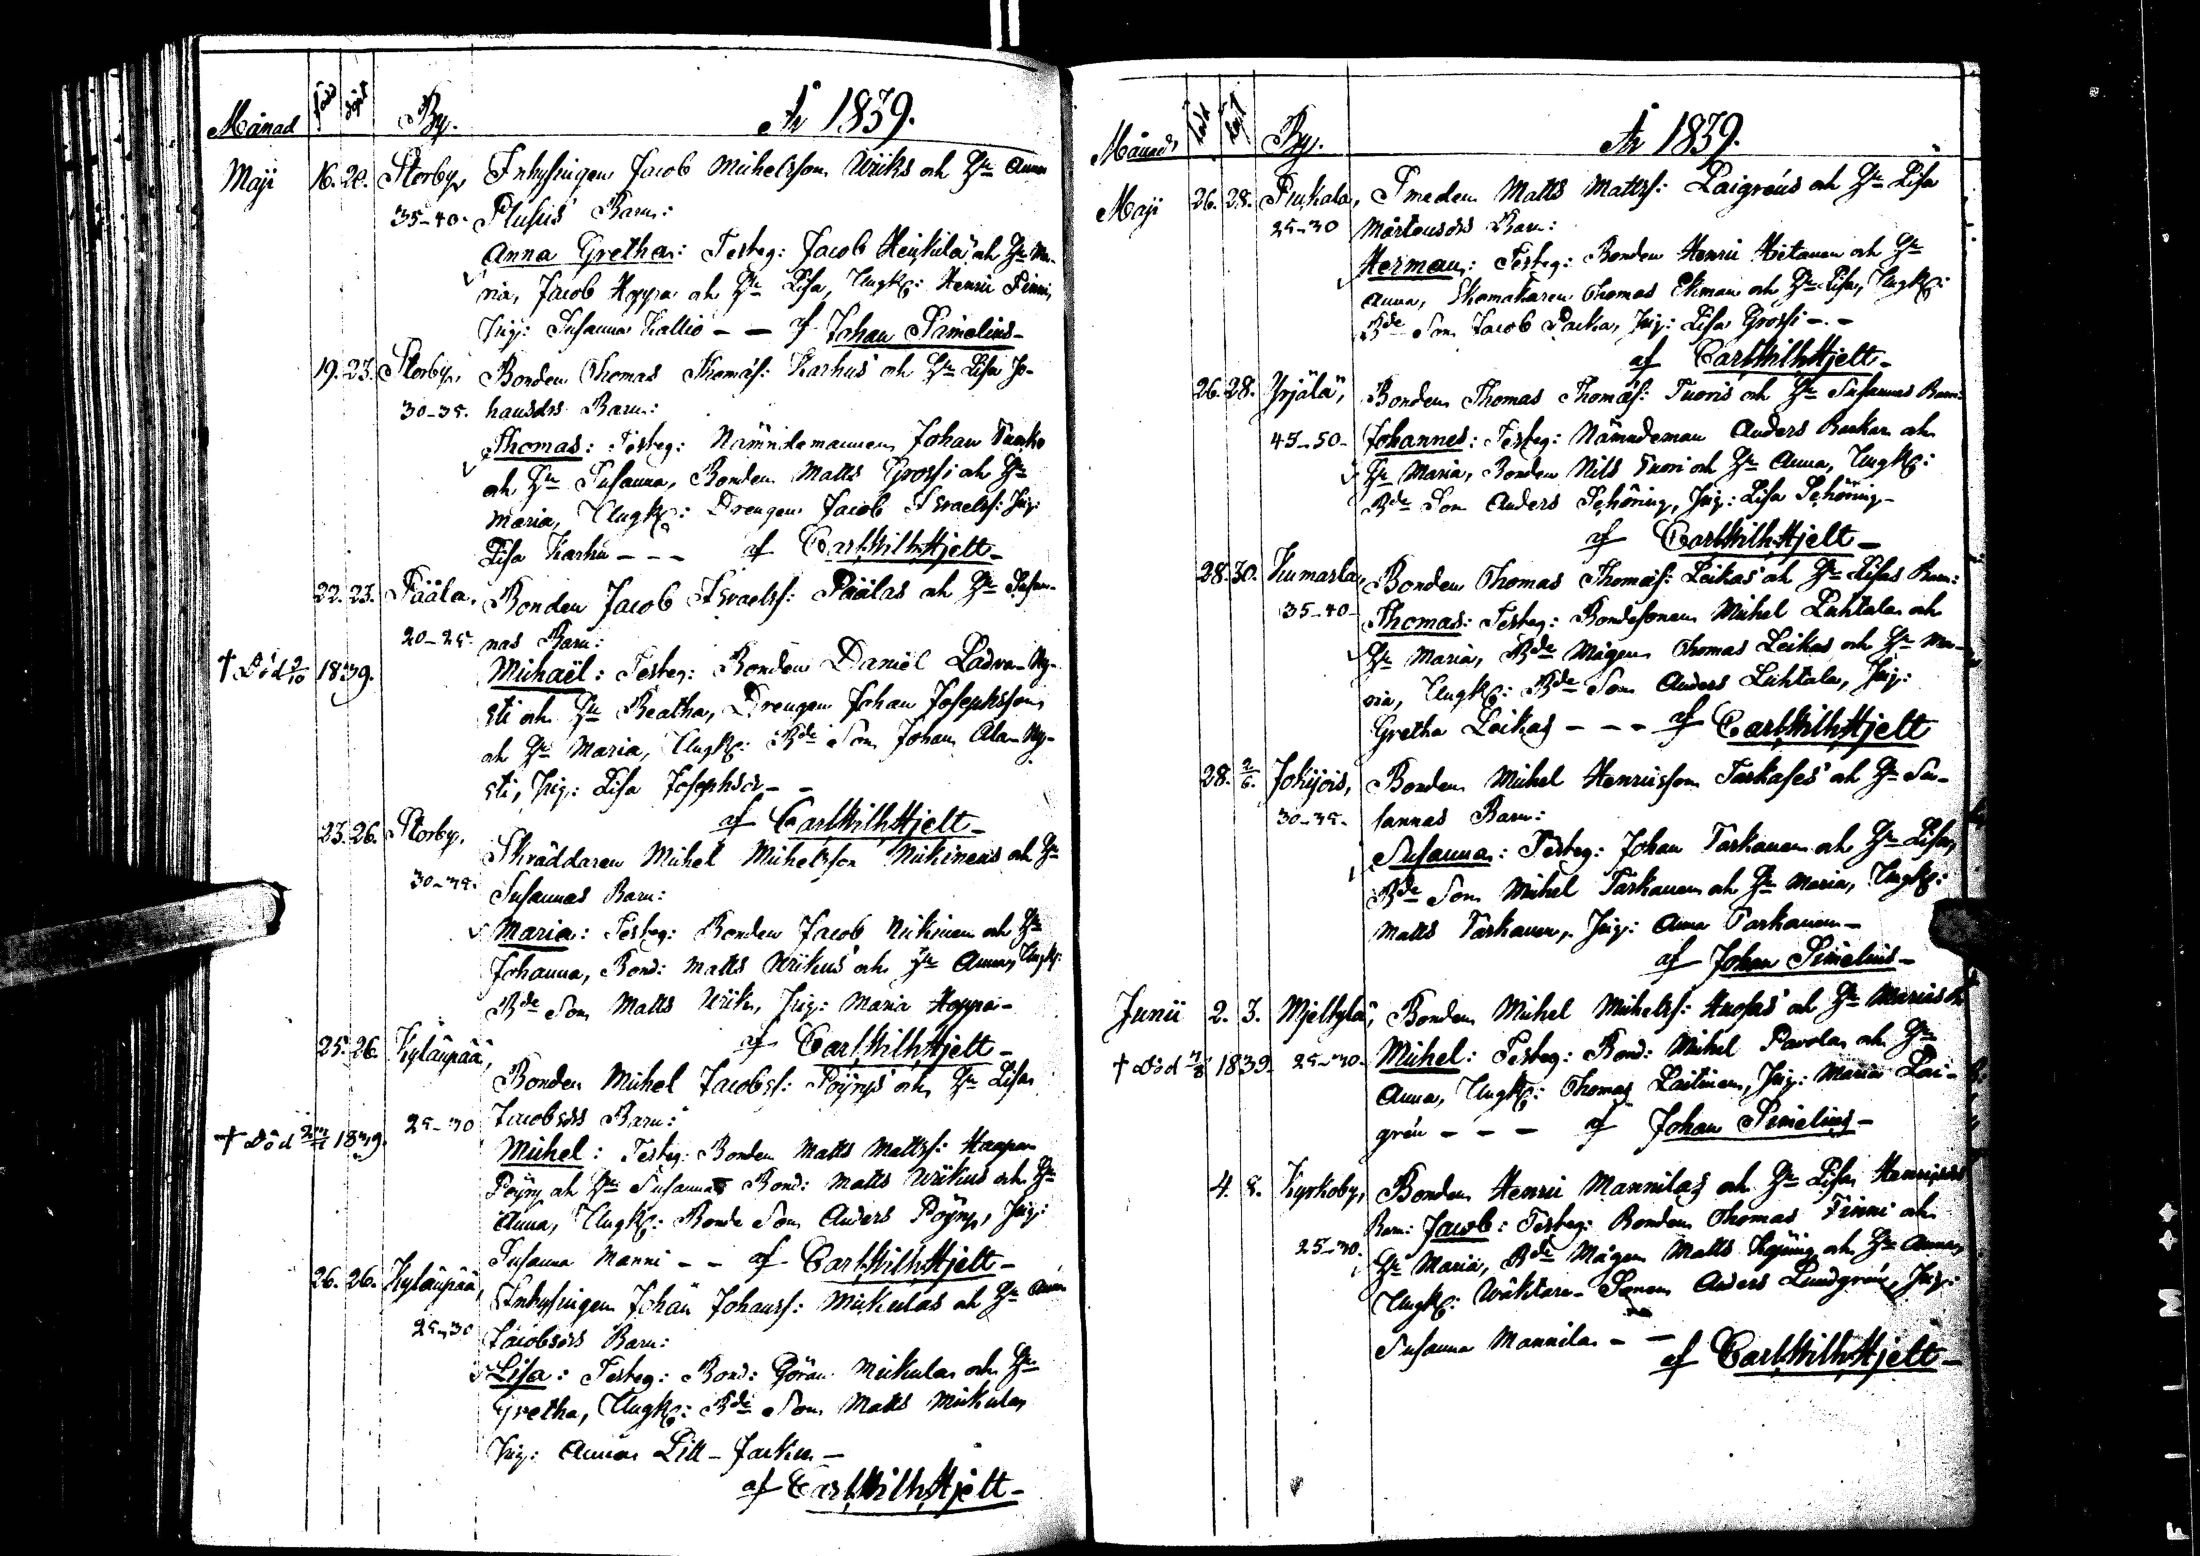 Månad Född Döpt By. År 1839.
Maji 16. 20. Storby, Inhysingen Jacob Michelsson Wiiks och Hu Anna
35-40. Barn:
Anna Gretha: Testeg: Jacob Heickilä och Hu Ma-
ria, Jacob Hoppa och Hu Lisa, Ungk: Henric Finni,
Pig: Susanna Kallio - - af Johan Simelius -
19. 23. Storby, Bonden Thomas Thomæs: Karhus och Hu Lisa Jo-
30-35. hansdrs Barn:
Thomas: Testeg: Nämndemannen Johan
och Hu Susanna, Bonden Matts Grossi och Hu
Maria, Ungk: Drengen Jacob Israelss: Pig:
Lisa Karhu - - - af Carl Wilh. Hjelt -
22. 23. Pääla, Bonden Jacob Israelss: Päälas och Hu Susan-
20-25. nas Barn:
† Död 2/10 1839. Michaël: Testeg: Bonden Daniel Ladva-Ny-
sti och Hu Beatha, Drengen Johan Josephsson
och Hu Maria, Ungk: Bde Son Johan Ala-Ny-
sti, Pig: Lisa Josephsdr - -
af Carl Wilh. Hjelt -
23. 26. Storby, Skräddaren Michel Michelsson Mickinens och Hu
30-35. Susannas Barn:
Maria: Testeg: Bonden Jacob Mickinen och Hu
Johanna, Bond: Matts Wiikus och Hu Anna, Ungk:
Bde Son Matts Wiik, Pig: Maria Hoppa -
af Carl Wilh. Hjelt -
25. 26. Kylänpää, Bonden Michel Jacobss: Pöyrys och Hu Lisa
25-30 Jacobsdrs Barn:
† Död 1839. Michel: Testeg: Bonden Matts Mattss: Haapa-
Pöyry och Hu Susanna Bond: Matts Wiikus och Hu
Anna, Ungk: Bonde Son Anders Pöyry, Pig:
Susanna Manni - - af Carl Wilh. Hjelt -
26. 26. Kylänpää, Inhysingen Johan Johanss: Mickulas och Hu Anna
25-30 Jacobsdrs Barn:
Lisa: Testeg: Bond: Göran Mickula och Hu
Gretha, Ungk: Bde Son Matts Mickula
Pig: Anna Lill-Jasku -
af Carl Wilh. Hjelt -
Månad Född Döpt By. År 1839.
Maji 26. 28. Smeden Matts Mattss: Laigréns och Hu Lisa
25-30 Mårtensdrs Barn:
Herman: Testeg: Bonden Henric Hietanen och Hu
Anna, Skomakaren Thomas Ekman och Hu Lisa, Ungk:
Bde Son Jacob Packa, Pig: Lisa Grossi - -
af Carl Wilh. Hjelt -
26. 28. Yrjälä, Bonden Thomas Thomæs: Tuoris och Hu Susannas Barn:
45-50 - Johannes: Testeg: Nämndeman Anders och
Hu Maria, Bonden Nils Tuori och Hu Anna, Ungk:
Bde Son Anders Schöring, Pig: Lisa Schöring -
af Carl Wilh. Hjelt -
28. 30. Kumarla, Bonden Thomas Thomæs: Leikas och Hu Lisas Barn:
35-40 - Thomas: Testeg: Bondesonen Michel Luhtala och
Hu Maria, Bde Mågen Thomas Leikas och Hu Ma-
ria, Ungk: Bde Son Anders Luhtala, Pig:
Gretha Leikas - - - af Carl Wilh. Hjelt
28. 2/6. Jokijois, Bonden Michel Henricsson Tarkases och Hu Su-
30-35. sannas Barn:
Susanna: Testeg: Johan Tarkanen och Hu Lisa,
Bde Son Michel Tarkanen och Hu Maria, Ungk:
Matts Tarkanen, Pig: Anna Tarkanen -
af Johan Simelius -
Junii 2. 3. Mjeltylä, Bonden Michel Michelss: och Hu Marias
† Död 1839. 25-30. Michel: Testeg: Bond: Michel Pavola och Hu
Anna, Ungk: Thomas Laitinen, Pig: Maria Lai-
grén - - - af Johan Simelius -
4. 8. Kyrkoby, Bonden Henric Mannilas och Hu Lisa Henricsdrs
Barn: Jacob: Testeg: Bonden Thomas Finni och
25-30. Hu Maria, Bde Mågen Matts och Hu Anna,
Ungk: Wäktare-Sonen Anders Lundgrén, Pig:
Susanna Mannila - -
af Carl Wilh. Hjelt -
FILM